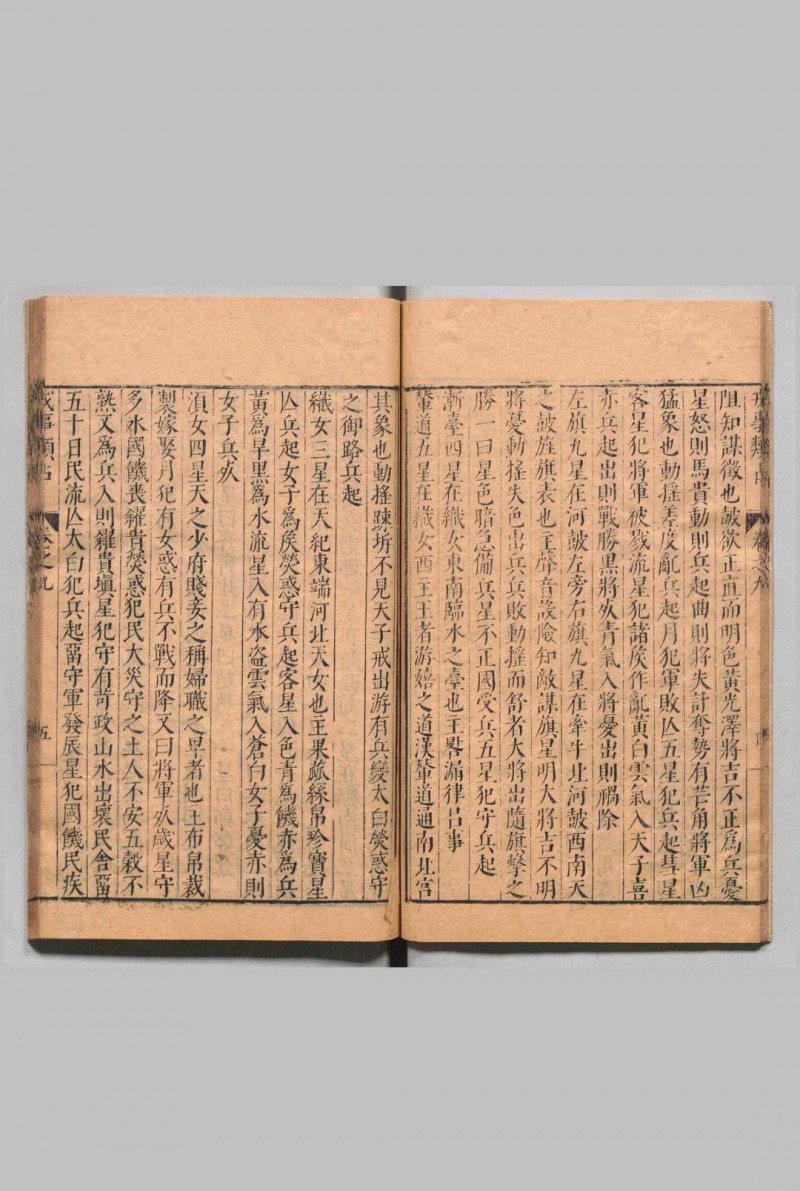 阻知謀徵也皷欲正直而明色黃光澤將吉不正爲兵憂
星怒則馬貴動則兵起曲則將失計奪勢有芒角將軍凶
猛象也動搖差度亂兵起月犯軍敗亾五星犯兵起彗星
客星犯將軍被戮流星犯諸矦作亂黃白雲氣入天子喜
赤兵起出則戰勝黑將㱙青氣入將憂出則禍除
左旗九星在河皷左旁右旗九星在牽牛北河皷西南天
之皷旌旗表也主聲音設險知敵謀旗星明大將吉不明
將憂動搖失色出兵兵敗動搖而舒者大將出隨旗擊之
勝一曰星色暗急備兵星不正國受兵五星犯守兵起
漸臺四星在織女東南臨水之臺也主晷漏律呂事
輦道五星在織女西主王者游嬉之道漢輦道通南北宮
其象也動搖踈拆不見天子戒出游有兵變太白熒惑守
之御路兵起
織女三星在天紀東端河北天女也主果蓏絲帛珍寳星
亾兵起女子爲矦熒惑守兵起客星入色青爲饑赤爲兵
黃爲旱黑爲水流星入有水盜雲氣入蒼白女子憂赤則
女子兵㱙
湏女四星天之少府賤妾之稱婦職之卑者也主布帛裁
製嫁娶月犯有女惑有兵不戰而降又曰將軍㱙歲星守
多水國饑喪糴貴熒惑犯民大災守之土人不安五穀不
熟又爲兵入則糴貴塡星犯守有苛政山水出壞民舍畱
五十日民流亾太白犯兵起畱守軍發辰星犯國饑民疾
戎事類占 卷之九 五